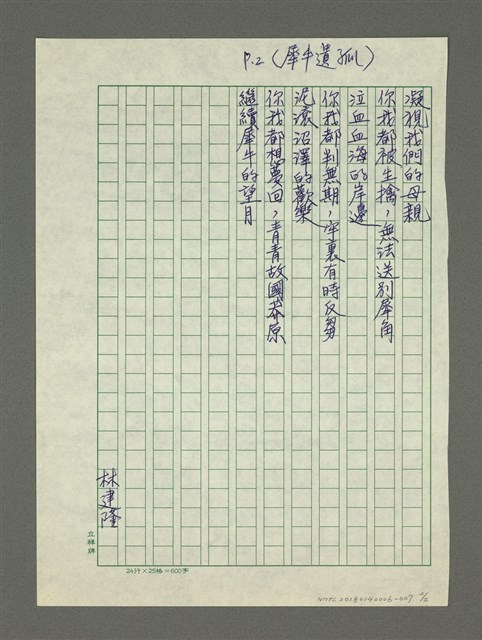 P.2（犀牛遺孤）
凝視我們的母親
你我都被生擒，無法送別犀角
泣血血海的岸邊
你我都判無期，牢裏有時反芻
泥濠沼澤的歡樂
你我都想夢回，青青故國莽原
繼續犀牛的望月
林建隆
立祥牌
24行×25格=600字
NMTL20180040006-007 2/2